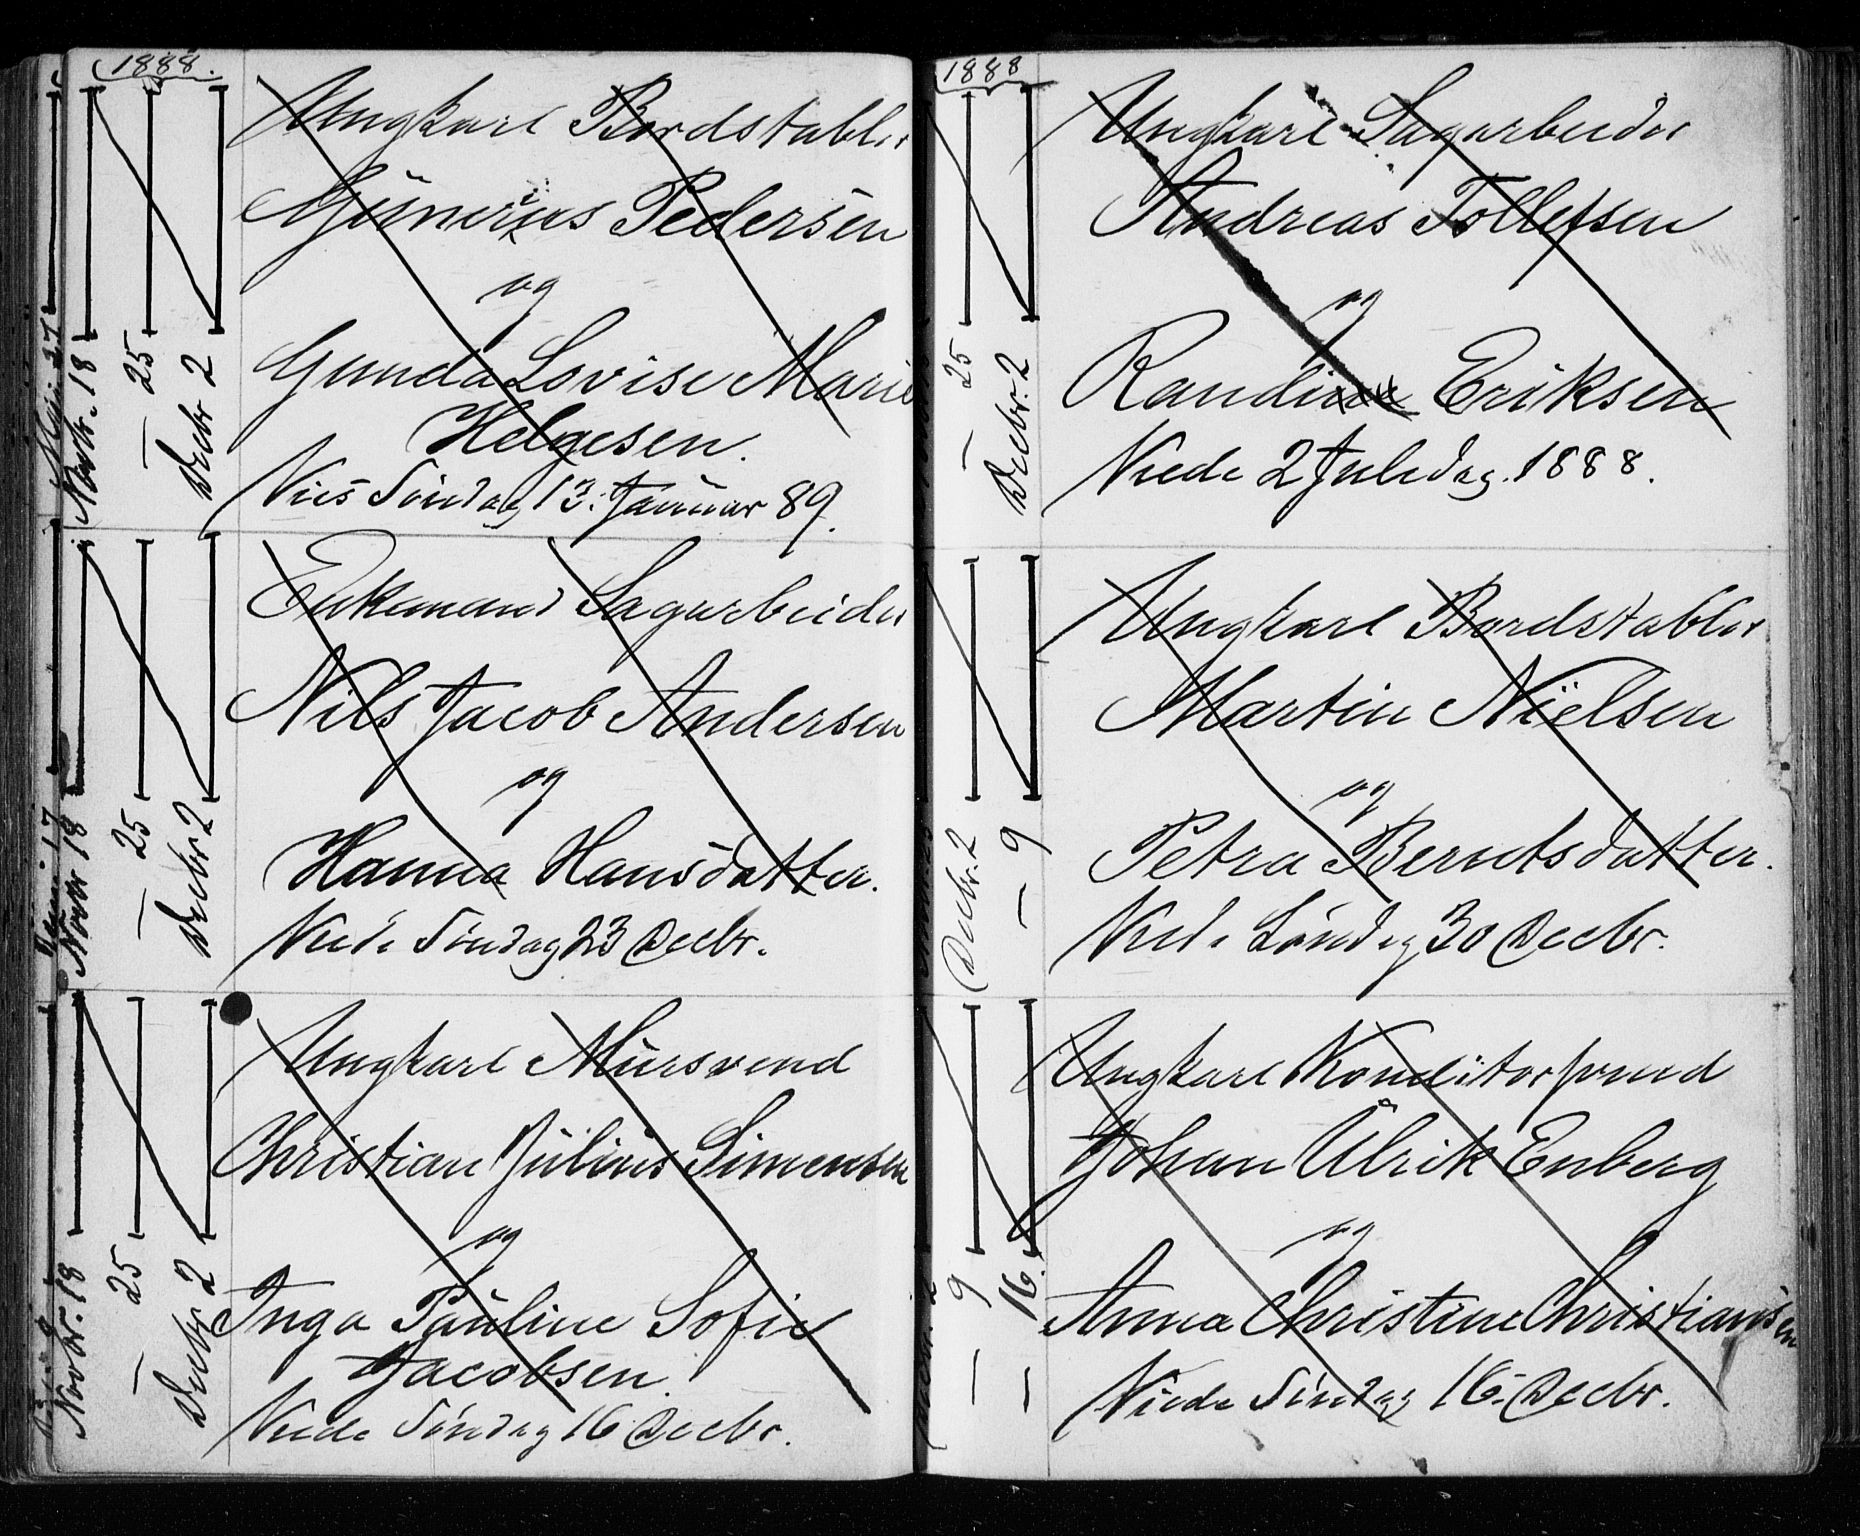 1888.
Novbr. 18
— 25
Decbr 2
Ungkarl Bordstabler
Gunerius Pedersen
og
Gunda Lovise Marie
Helgesen.
Vies Søndag 13. Januar 89.
Novbr 18
— 25
Decbr 2
Enkemand Sagarbeider
Nils Jacob Andersen
og
Hanna Hansdatter.
Viede Søndag 23 Decbr.
Novbr. 18
— 25
Decbr 2
Ungkarl Mursvend
Christian Julius Simensen
og
Inga Pauline Sofie
Jacobsen.
Viede Søndag 16 Decbr.
1888
— 25
Decbr. 2
Ungkarl Sagarbeider
Andreas Tollefsen
og
Randi Eriksen
Viede 2 Juledag. 1888.
Decbr. 2
— 9
Ungkarl Bordstabler
Martin Nielsen
og
Petra Berntsdatter.
Viede Søndag 30 Decbr.
— 9
— 16.
Ungkarl Konditorsvend
Johan Ulrik Enberg
og
Anna Christine Christiansen
Viede Søndag 16. Decbr.